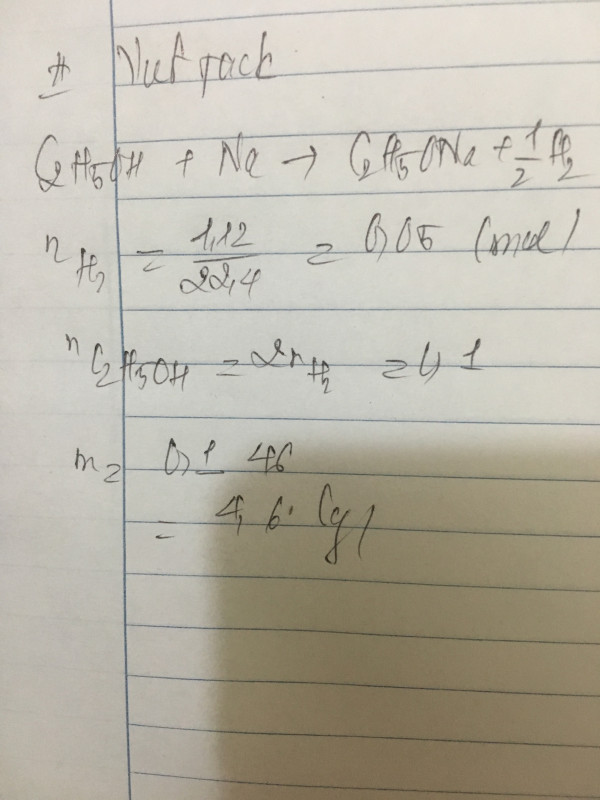 C2H5OH + Na → C2H5ONa + 1/2 H2
nH2 = 1,12/22,4 = 0,05 (mol)
nC2H5OH = 2nH2 = 0,1
m = 0,1 . 46
= 4,6 (g)